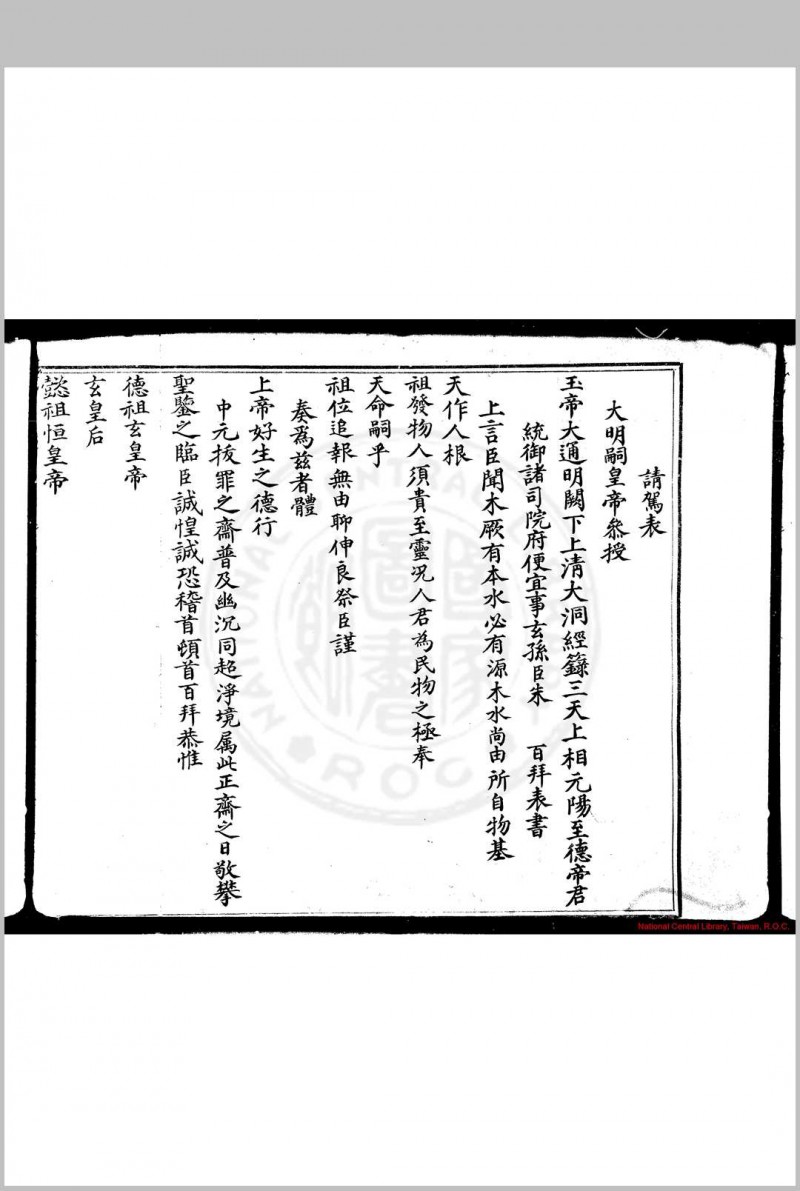 請駕表
大明嗣皇帝叅授
玉帝大通明闕下上清大洞經籙三天上相元陽至德帝君
統御諸司院府便宜事玄孫臣朱　百拜表書
上言臣聞木厥有本水必有源木水尚由所自物基
天作人根
祖發物人須貴至靈况人君為民物之極奉
天命嗣乎
祖位追報無由聊伸良祭臣謹
奏為兹者體
上帝好生之德行
中元拔罪之齋普及幽沉同超淨境属此正齋之日敬攀
聖鑒之臨臣誠惶誠恐稽首頓首百拜恭惟
德祖玄皇帝
玄皇后
懿祖恒皇帝
國家圖書館
NATIONAL CENTRAL LIBRARY
R.O.C.
National Central Library, Taiwan, R.O.C.